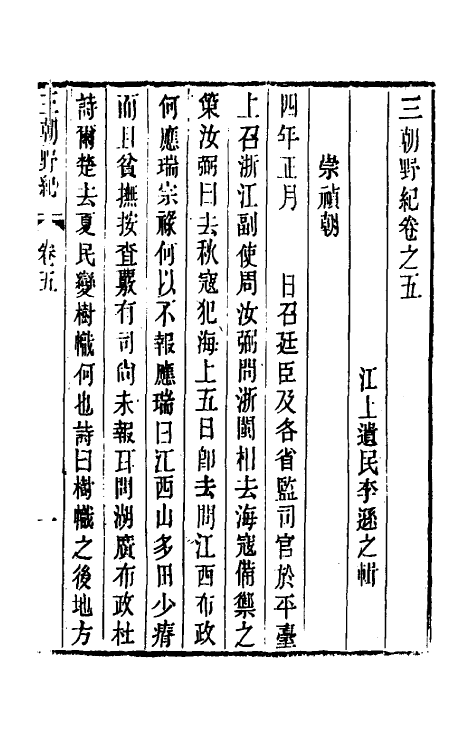 三朝野紀卷之五
江上遺民李遜之輯
崇禎朝
四年正月　　日召廷臣及各省監司官於平臺
上召浙江副使周汝弼問浙閩相去海寇備禦之
策汝弼曰去秋寇犯海上五日卽去問江西布政
何應瑞宗祿何以不報應瑞曰江西山多田少瘠
而且貧撫按查覈有司尚未報耳問湖廣布政杜
詩爾楚去夏民變樹幟何也詩曰樹幟之後地方
三朝野紀　卷五　一